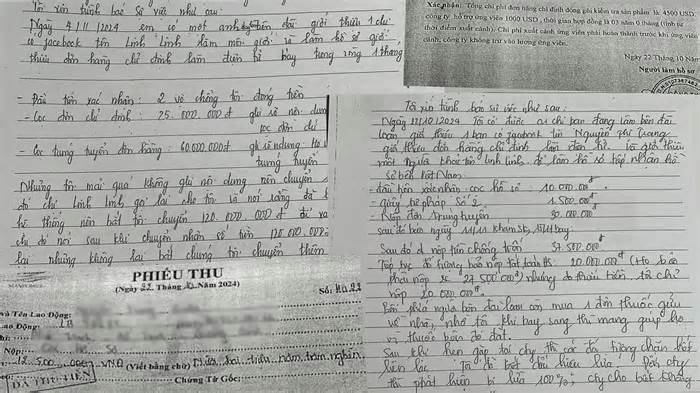 Tôi xin trình bày sự việc như sau:
Ngày 4/11/2024 em có một anh bên đài giới thiệu 1 chị
có facebook tên Linh Linh làm môi giới và làm hồ sơ giới
thiệu đơn hàng chỉ định làm điện tử bay trong vòng 1 tháng
- Đầu tiên xác nhận: 2 vợ chồng tôi đóng tiền
- Cọc đơn chỉ định: 25.000.000đ ghi rõ nội dung
cọc đơn chỉ
- Cọc trúng tuyển đơn hàng: 60.000.000đ ghi rõ nội dung
trúng tuyển
Nhưng tôi mải quá không ghi nội dung nên chuyển
đó chị Linh Linh gọi lại cho tôi là nói rằng đã
hệ thống nên bắt tôi chuyển 120.000.000đ
chị đó nói sau khi chuyển nhận số tiền 120.000.000
lại nhưng không lại bắt chúng tôi chuyển thêm
Xác nhận: Tổng chi phí đơn hàng chỉ định đóng ghi kiểm tra sản phẩm là 4500 USD
công ty hỗ trợ ứng viên 1000 USD, thời gian hợp đồng là 03 năm 0 tháng (tính từ
thời điểm xuất cảnh). Chi phí xuất cảnh ứng viên phải hoàn thành trước khi ứng viên
cảnh, công ty không trừ vào lương ứng viên.
Ngày 22 Tháng 10 Năm
Người làm hồ sơ
PHIẾU THU
(Ngày 22 Tháng 10 Năm 2024)
Số:
và Tên Lao Động:
Lao Động:
Nộp:
12.500.000 VNĐ (Viết bằng chữ) Mười hai triệu năm trăm nghìn
ĐÃ THU TIỀN
Chứng Từ Gốc:
Tôi xin trình bày sự việc như sau:
Ngày 17/10/2024 Tôi có được a chị bạn đang làm bên đài
loan giới thiệu 1 bạn có facebook tên Nguyễn Phi Trang
giới thiệu đơn hàng chỉ định làm điện tử. Và giới thiệu
một người khác tên Linh Linh để làm hồ sơ tiếp nhận hồ
sơ bên Việt Nam.
- đầu tiên xác nhận cọc hồ sơ: 10.000.000đ
- giấy tư pháp số 2. 1.500.000đ
- Nộp đơn trúng tuyển 30.000.000đ
sau đó hẹn ngày 11/11 khám sk,
Sau đó đ nộp tiền chống trốn 37.500.000đ
Tiếp tục đó hướng bảo nộp tất toán là: 20.000.000đ
phải nộp là "27.500.000đ") nhưng do thiếu tiền tôi chỉ
nộp 20.000.000đ.
Bên phía người bên đài loan còn mua 1 đơn thuốc gửu
về nhà, nhờ tôi khi bay sang thì mang giúp họ
vì thuốc bên đó đắt.
Sau khi hẹn gặp tại cty thì các đối tượng chặn hết
liên lạc. Tôi đã biết dấu hiệu lừa. đến cty
thì phát hiện bị lừa 100%, cty cho biết không